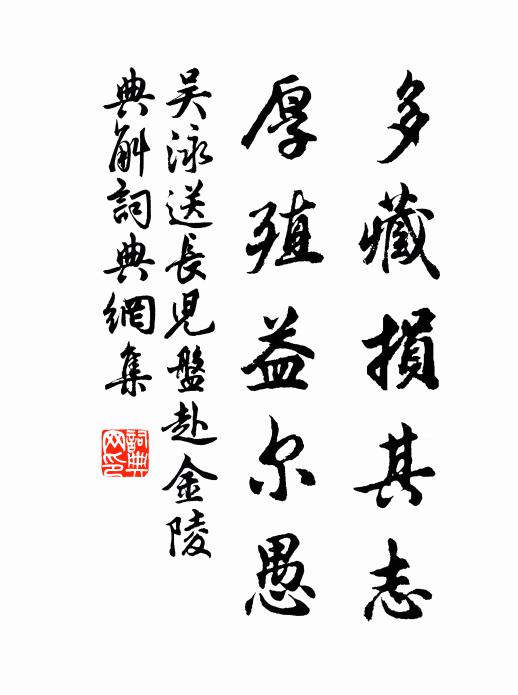 多藏損其志
厚殖益尔愚
吴泳送長児盤赴金陵
典解詞典網集
詞典
网印